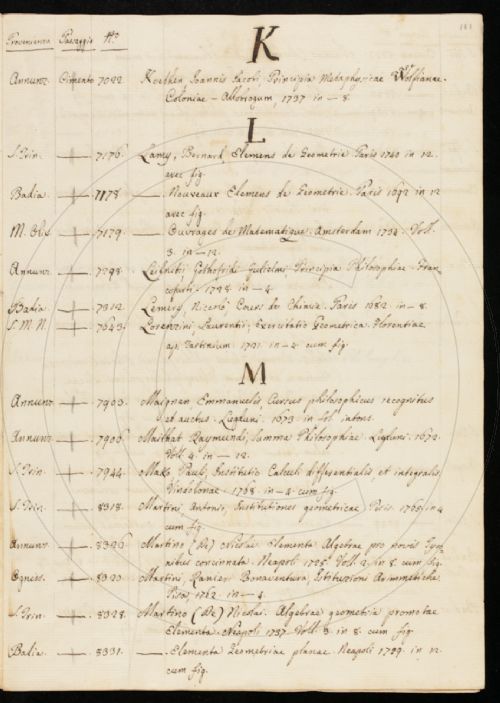 181
Provenienza Passaggio N.o
K
Annunz. Cimento 7022. Koethen Joannis Jacobi, Principia Metaphysicae Wolfianae.
Coloniae - Allobrogum, 1737. in - 8.
L
7176. Lamy, Bernard, Elemens de Geometrie. Paris 1740 in 12.
avec fig.
Badia 7178 — Nouveaux Elemens de Geometrie. Paris 1692 in 12
avec fig.
7179. — Ouvrages de Matematique. Amsterdam 1734. Voll.
3. in - 12.
Annunz. Leibnitii Gothofridi Gulielmi, Principia Philosophiae. Fran
cofurti. 1728. in - 4.
Badia 7312. Lemery, Niccolò, Cours de Chimie. Paris 1682. in - 8.
S. M. N. 7643. Lorenzini, Laurentii, Exercitatio Geometrica. Florentiae
ap. Tartinium. 1721. in - 4. cum fig.
M
Annunz. 7903. Maignan Emmanuelis, Cursus philosophicus recognitus
et auctus. Lugduni. 1673. in fol.
Annunz. 7906. Mailhat Raymundi, Summa Philosophiae. Lugduni. 1672.
Voll. 4. in - 12.
7944. Mako Pauli, Institutio Calculi differentialis, et integralis.
Vindobonae. 1768. in - 4. cum fig.
8318. Martini, Antonio, Institutiones geometricae. Paris. in 4
cum fig.
Annunz. 8326. Martino (De) Nicolai. Elementa Algebrae pro novis Tyro
nibus concinnata. Neapoli 1725. Voll. 2. in 8. cum fig.
8320. Martini, Ranieri Bonaventura, Istituzioni Arimmetiche.
Pisa, 1762. in - 4.
8328. Martino (De) Nicolai. Algebrae geometria promotae
Elementa. Neapoli 1737. Voll. 3. in 8. cum fig.
Badia 8331. — Elementa Geometriae planae. Neapoli 1729. in 12.
cum fig.